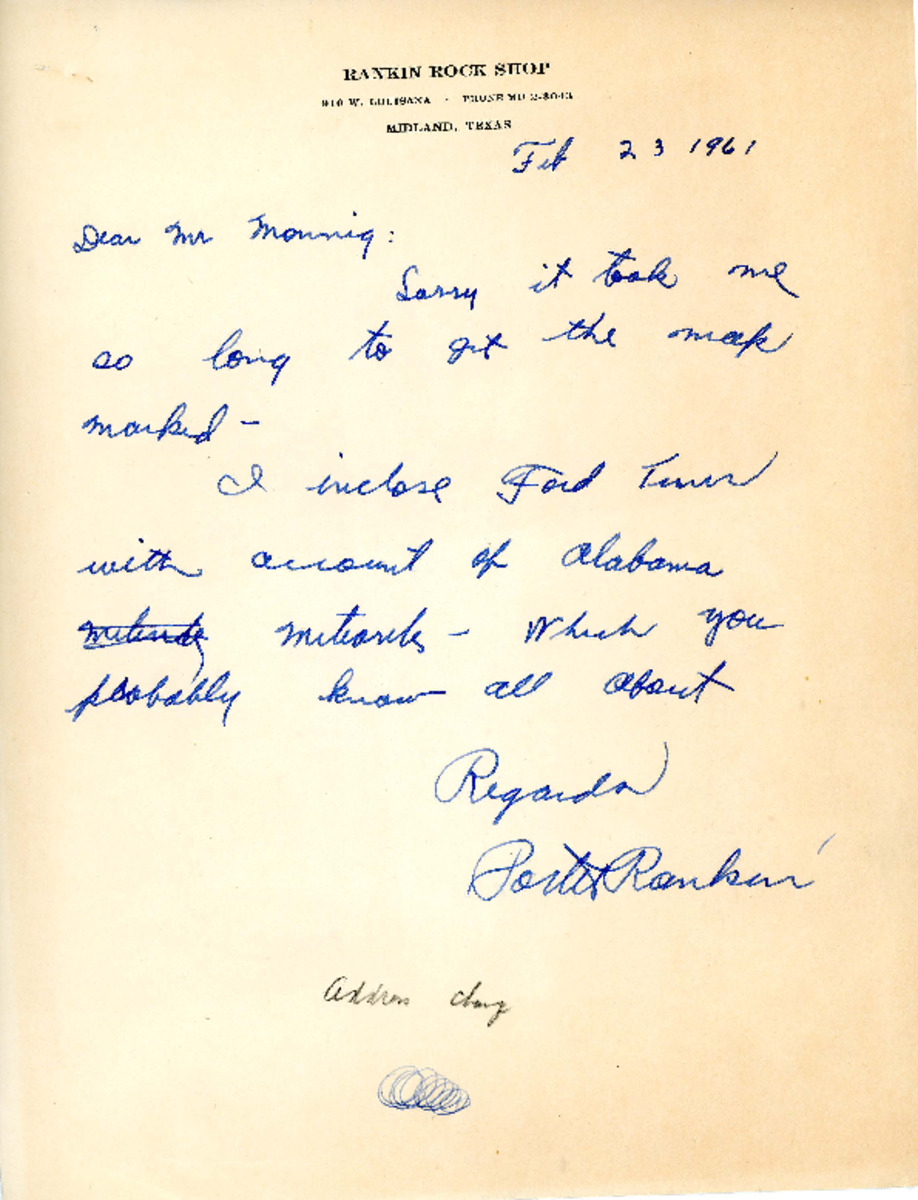 RANKIN ROCK SHOP
910 W. LOUISANA · PHONE MU
MIDLAND, TEXAS
Feb 23 1961
Dear Mr Monnig:
Sorry it took me
so long to get the map
marked -
I inclose Ford Times
with account of Alabama
meteorite - Which you
probably know all about
Regards
Porter Rankin
Address chang